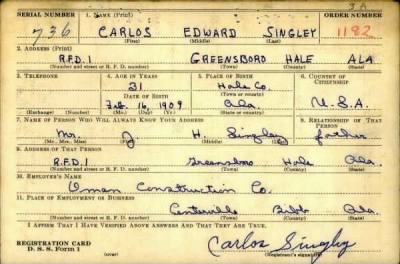 3 A
SERIAL NUMBER 1. NAME (Print) ORDER NUMBER
736 CARLOS EDWARD SINGLEY 1182
(First) (Middle) (Last)
2. ADDRESS (Print)
R.F.D. 1 GREENSBORO HALE ALA
(Number and street or R. F. D. number) (Town) (County) (State)
3. TELEPHONE 4. AGE IN YEARS 5. PLACE OF BIRTH 6. COUNTRY OF CITIZENSHIP
31 Hale Co.
DATE OF BIRTH (Town or county)
Feb. 16, 1909 Ala. U.S.A.
(Exchange) (Number) (Mo.) (Day) (Yr.) (State or country)
7. NAME OF PERSON WHO WILL ALWAYS KNOW YOUR ADDRESS 8. RELATIONSHIP OF THAT PERSON
Mr. J H. Singley father
(Mr., Mrs., Miss) (First) (Middle) (Last)
9. ADDRESS OF THAT PERSON
R.F.D. 1 Greensboro Hale Ala.
(Number and street or R. F. D. number) (Town) (County) (State)
10. EMPLOYER'S NAME
Oman Construction Co.
11. PLACE OF EMPLOYMENT OR BUSINESS
Centerville Bibb Ala.
(Number and street or R. F. D. number) (Town) (County) (State)
I AFFIRM THAT I HAVE VERIFIED ABOVE ANSWERS AND THAT THEY ARE TRUE.
REGISTRATION CARD
D. S. S. Form 1 (over) Carlos Singley
(Registrant's signature)